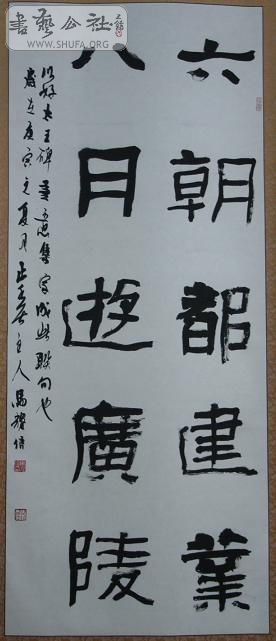 書藝公社
WWW.SHUFA.ORG
六朝都建業
八月遊廣陵
以好太王碑筆意集字成此聯句也
歲在庚寅之夏月主人馬